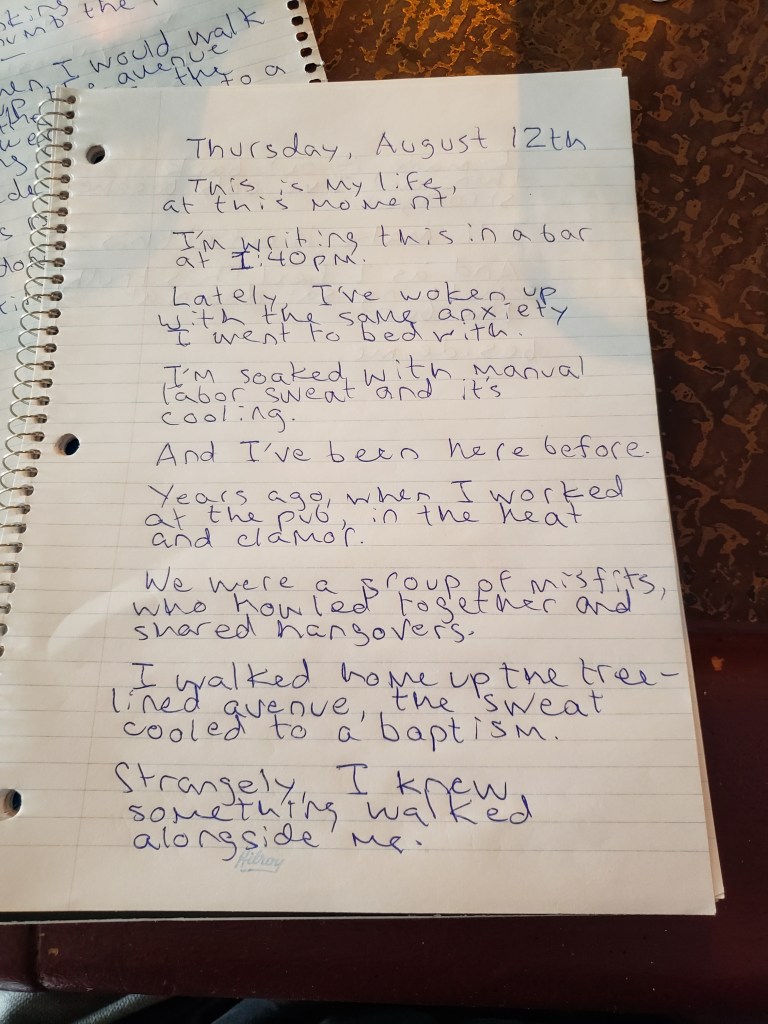 oking
numb the
hen I would walk
up the avenue
the to a
Thursday, August 12th
This is my life,
at this moment
I'm writing this in a bar
at 1:40pm.
Lately, I've woken up
with the same anxiety
I went to bed with.
I'm soaked with manual
labor sweat and it's
cooling.
And I've been here before.
Years ago, when I worked
at the pub, in the heat
and clamor.
We were a group of misfits,
who howled together and
shared hangovers.
I walked home up the tree-
lined avenue, the sweat
cooled to a baptism.
Strangely, I knew
something walked
alongside me.
Hilroy